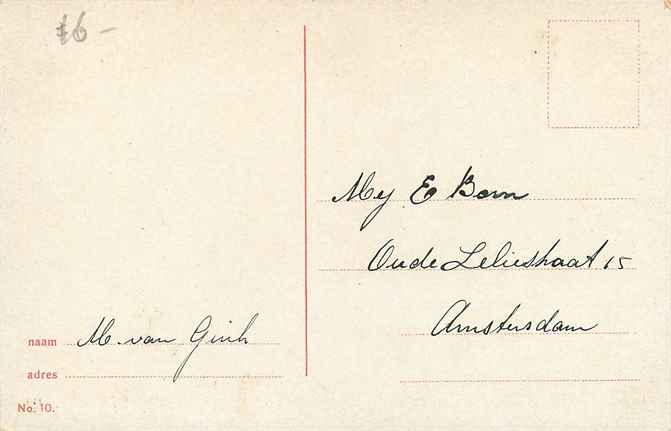 £6-
Mej E Born
Oude Leliestraat 15
Amsterdam
naam M. van Ginh
adres
No. 10.